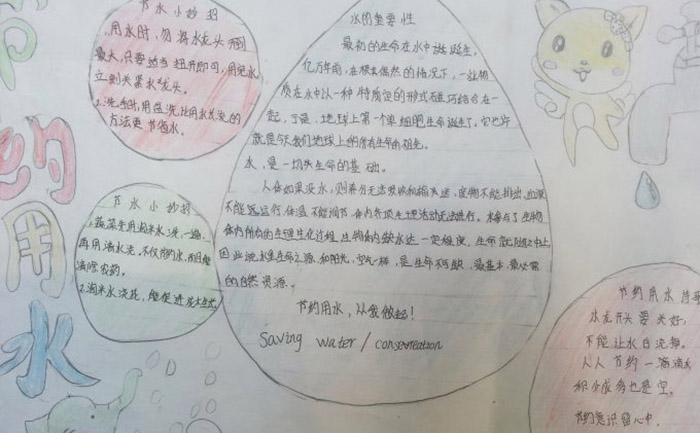 节
约
用
水
节水小妙招
1.用水时,勿将水龙头开到
最大,只要适当扭开即可,用完水
立刻关紧水龙头。
2.洗手时,用盆洗比用水龙头洗的
方法更节省水。
节水小妙招
1.蔬菜先用淘米水洗一遍,
再用清水洗,不仅节约水,而且能
清除农药。
2.淘米水浇花,能促进花木生长
水的重要性
最初的生命在水中诞生。
亿万年前,在极其偶然的情况下,一些物
质在水中以一种特定的形式碰巧结合在一
起,于是,地球上第一个单细胞生命诞生了。它也许
就是今天我们地球上的所有生命的祖先。
水,是一切生命的基础。
人体如果没水,则养分无法吸收和输送,废物不能排出,血液
不能运行,体温不能调节,体内各项生理活动无法进行。水参与了生物
体内所有的生理生化过程,生物体内缺水达一定程度,生命就
因此说水是生命之源,和阳光,空气一样,是生命不可缺,最基本,最必需
的自然资源。
节约用水,从我做起!
Saving water / conservation
节约用水
水龙头要关好,
不能让水白流掉。
人人节约一滴水
积少成多也是宝。
节约意识留心中,